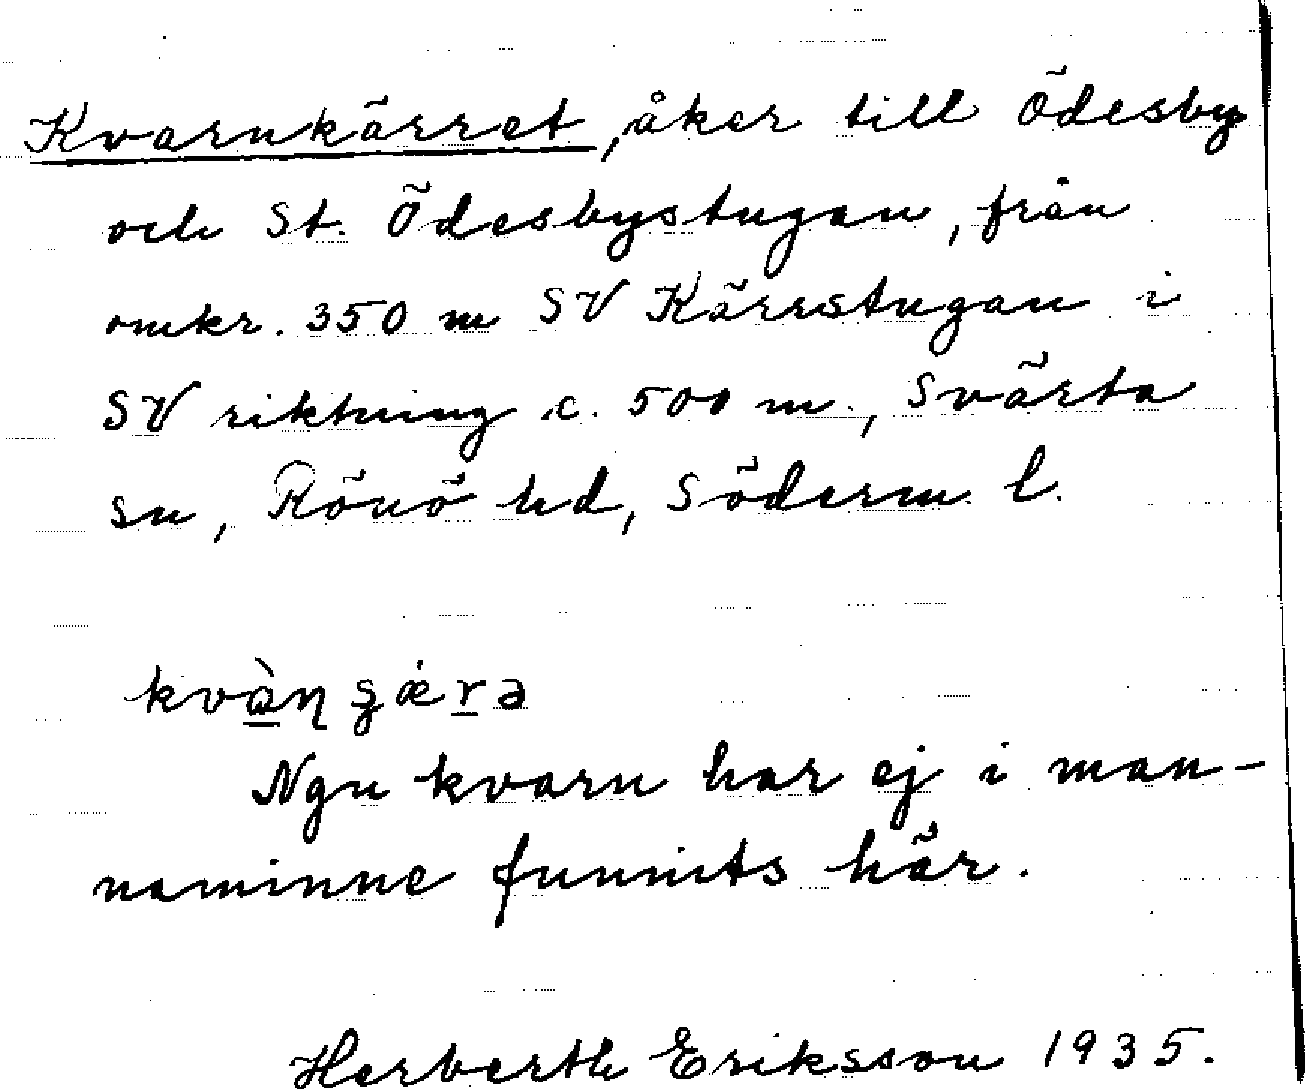 Kvarnkärret, åker till Ödesby
och St. Ödesbystugan, från
omkr. 350 m SV Kärrstugan i
SV riktning c. 500 m., Svärta
sn, Rönö hd, Söderm. l.
kvàŋ ɕǽrə
Ngn kvarn har ej i man-
naminne funnits här.
Herberth Eriksson 1935.